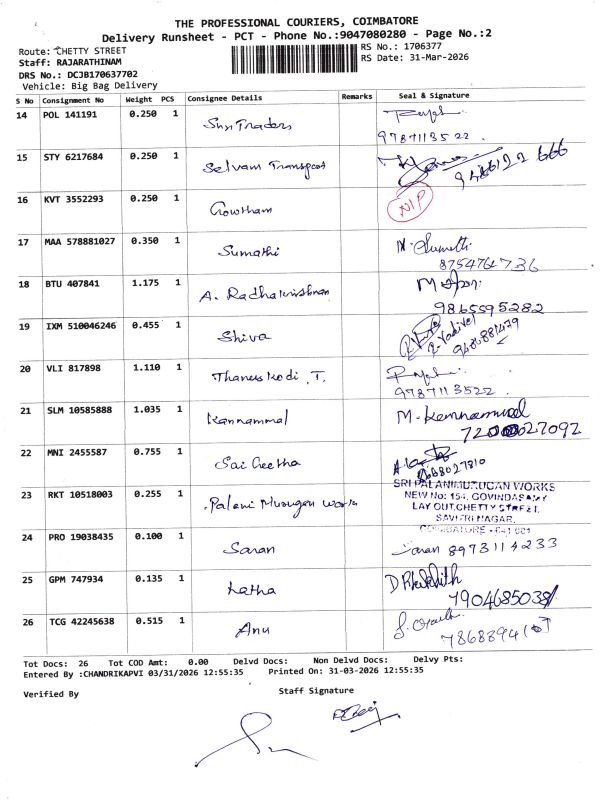 THE PROFESSIONAL COURIERS, COIMBATORE
Delivery Runsheet - PCT - Phone No.:9047080280 - Page No.:2
Route: CHETTY STREET
RS No.: 1706377
Staff: RAJARATHINAM
RS Date: 31-Mar-2026
DRS No.: DCJB170637702
Vehicle: Big Bag Delivery
S No Consignment No Weight PCS Consignee Details Remarks Seal & Signature
14 POL 141191 0.250 1 Sun Traders
9787113522
15 STY 6217684 0.250 1 Selvam Transport
9486122 666
16 KVT 3552293 0.250 1 Gowtham NIP
17 MAA 578881027 0.350 1 Sumathi
8754764736
18 BTU 407841 1.175 1 A. Radhakrishnan
9865595282
19 IXM 510046246 0.455 1 Shiva
R. Vadivel
9486881479
20 VLI 817898 1.110 1 Thanuskodi . T.
9787113522
21 SLM 10585888 1.035 1 Kannammal M. Kannammal
22 MNI 2455587 0.755 1 Sai Geetha
23 RKT 10518003 0.255 1 Palani Murugan work
SRI PALANIMURUGAN WORKS
NEW No: 154, GOVINDASAMY
LAY OUT, CHETTY STREET,
SAVITRI NAGAR,
COIMBATORE - 641 001
24 PRO 19038435 0.100 1 Saran Saran 8973114233
25 GPM 747934 0.135 1 Latha
7904685038
26 TCG 42245638 0.515 1 Anu
Tot Docs: 26 Tot COD Amt: 0.00 Delvd Docs: Non Delvd Docs: Delvy Pts:
Entered By :CHANDRIKAPVI 03/31/2026 12:55:35 Printed On: 31-03-2026 12:55:35
Verified By Staff Signature